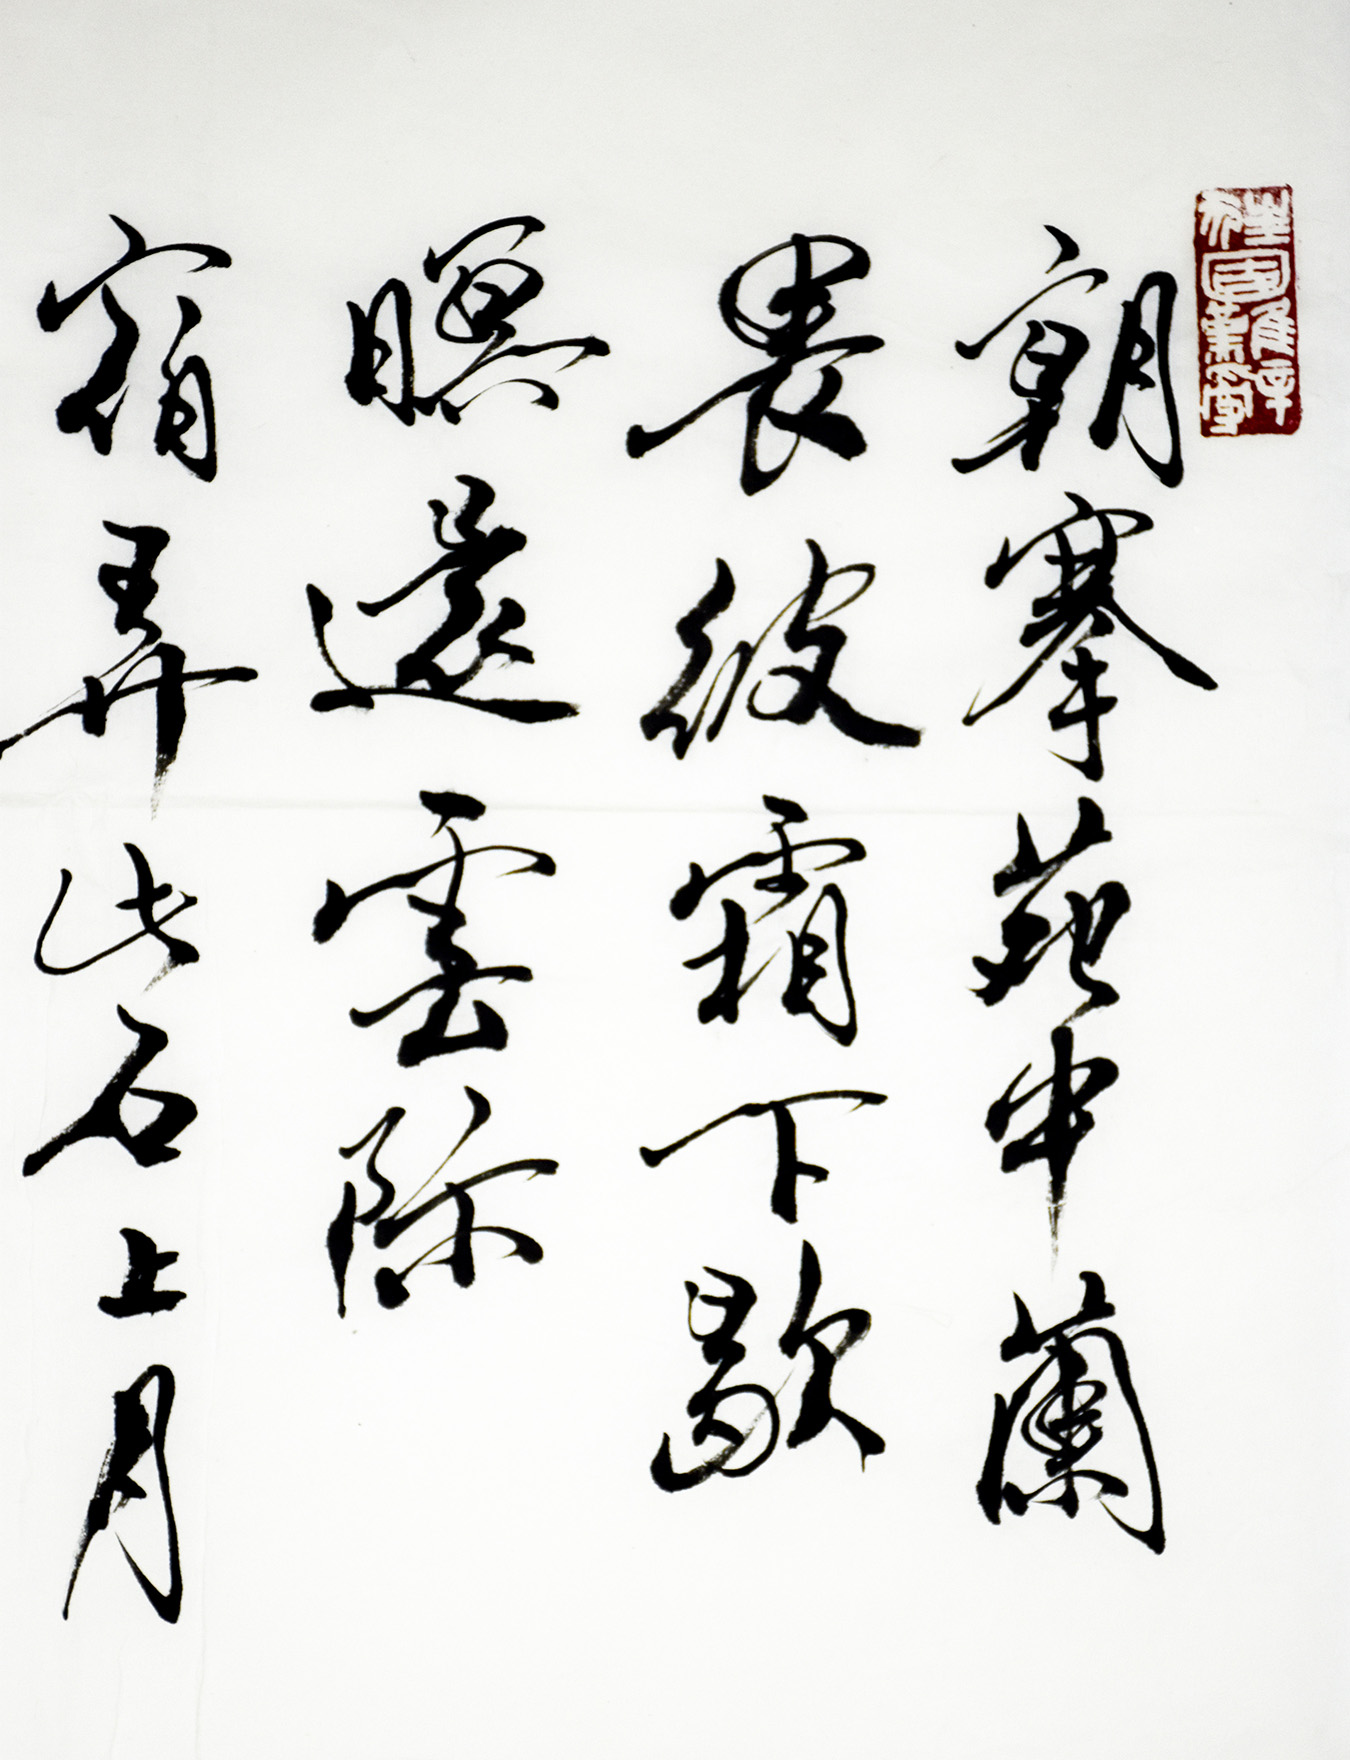 朝搴苑中蘭
畏彼霜下歇
瞑還雲際
宿弄此石上月